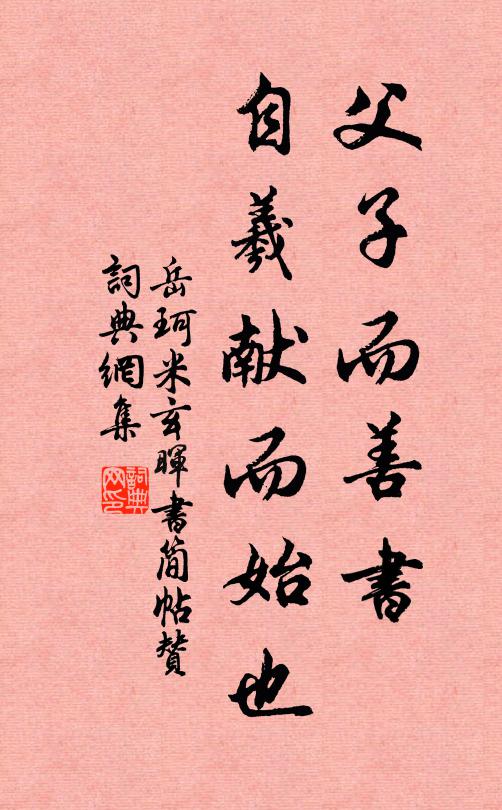 父子而善書
自羲献而始也
岳珂米玄暉書简帖贊
詞典網集
詞典网印